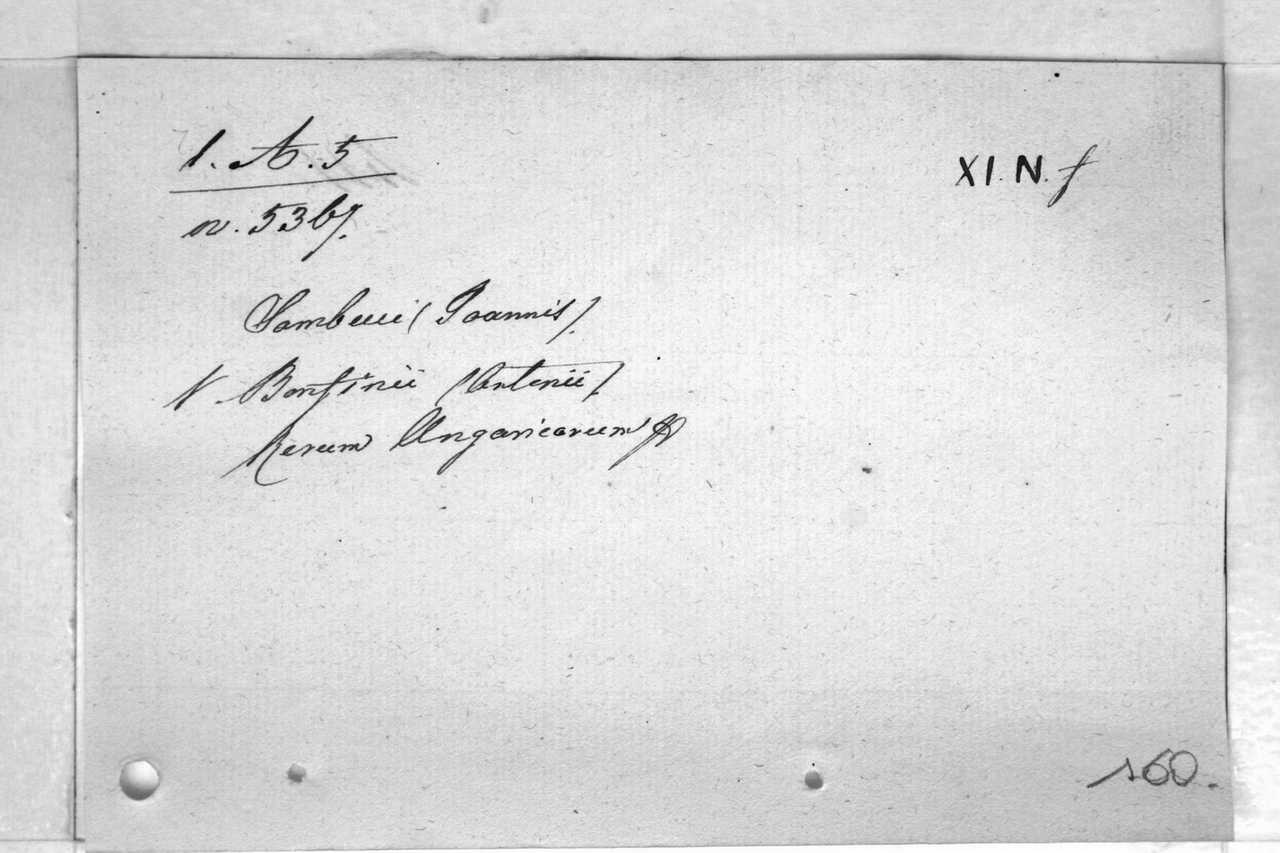 1. A. 5
XI. N. f
n. 5367.
Sambuci (Joannis).
V. Bonfinii (Antonii)
Rerum Ungaricarum
160.